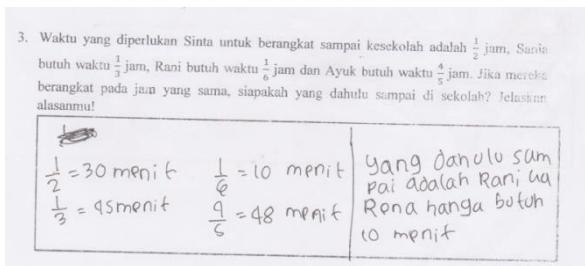 3. Waktu yang diperlukan Sinta untuk berangkat sampai kesekolah adalah 1/2 jam, Sania
butuh waktu 1/3 jam, Rani butuh waktu 1/6 jam dan Ayuk butuh waktu 4/5 jam. Jika mereka
berangkat pada jam yang sama, siapakah yang dahulu sampai di sekolah? Jelaskan
alasanmu!
1/2 = 30 menit
1/3 = 45 menit
1/6 = 10 menit
4/5 = 48 menit
yang dahulu sam
pai adalah Rani, ka
Rena hanya butuh
10 menit